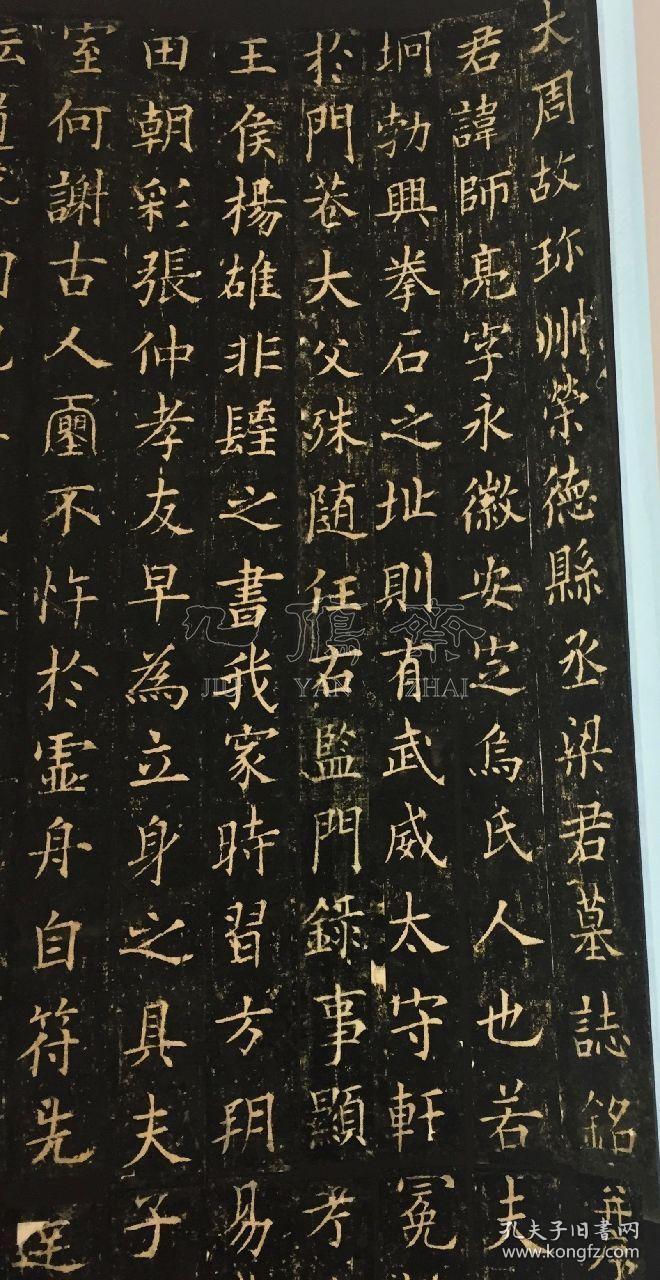 大周故珎州榮德縣丞梁君墓誌銘并序
君諱師亮字永徽安定烏氏人也若夫
坰勃興拳石之址則有武威太守軒冕
於門巷大父殊隨任右監門録事顯考
王侯楊雄非肆之書我家時習方玥易
田朝彩張仲孝友早為立身之具夫子
室何謝古人璽不忤於虛舟自符先
九鴈齋
JIU YAN ZHAI
孔夫子旧書网
www.kongfz.com